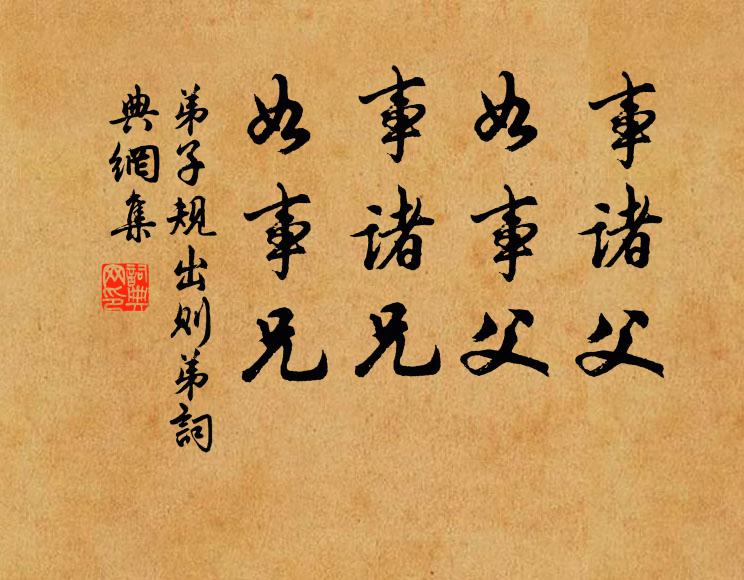 事諸父
如事父
事諸兄
如事兄
弟子規出則弟詞
典網集
詞典
网印